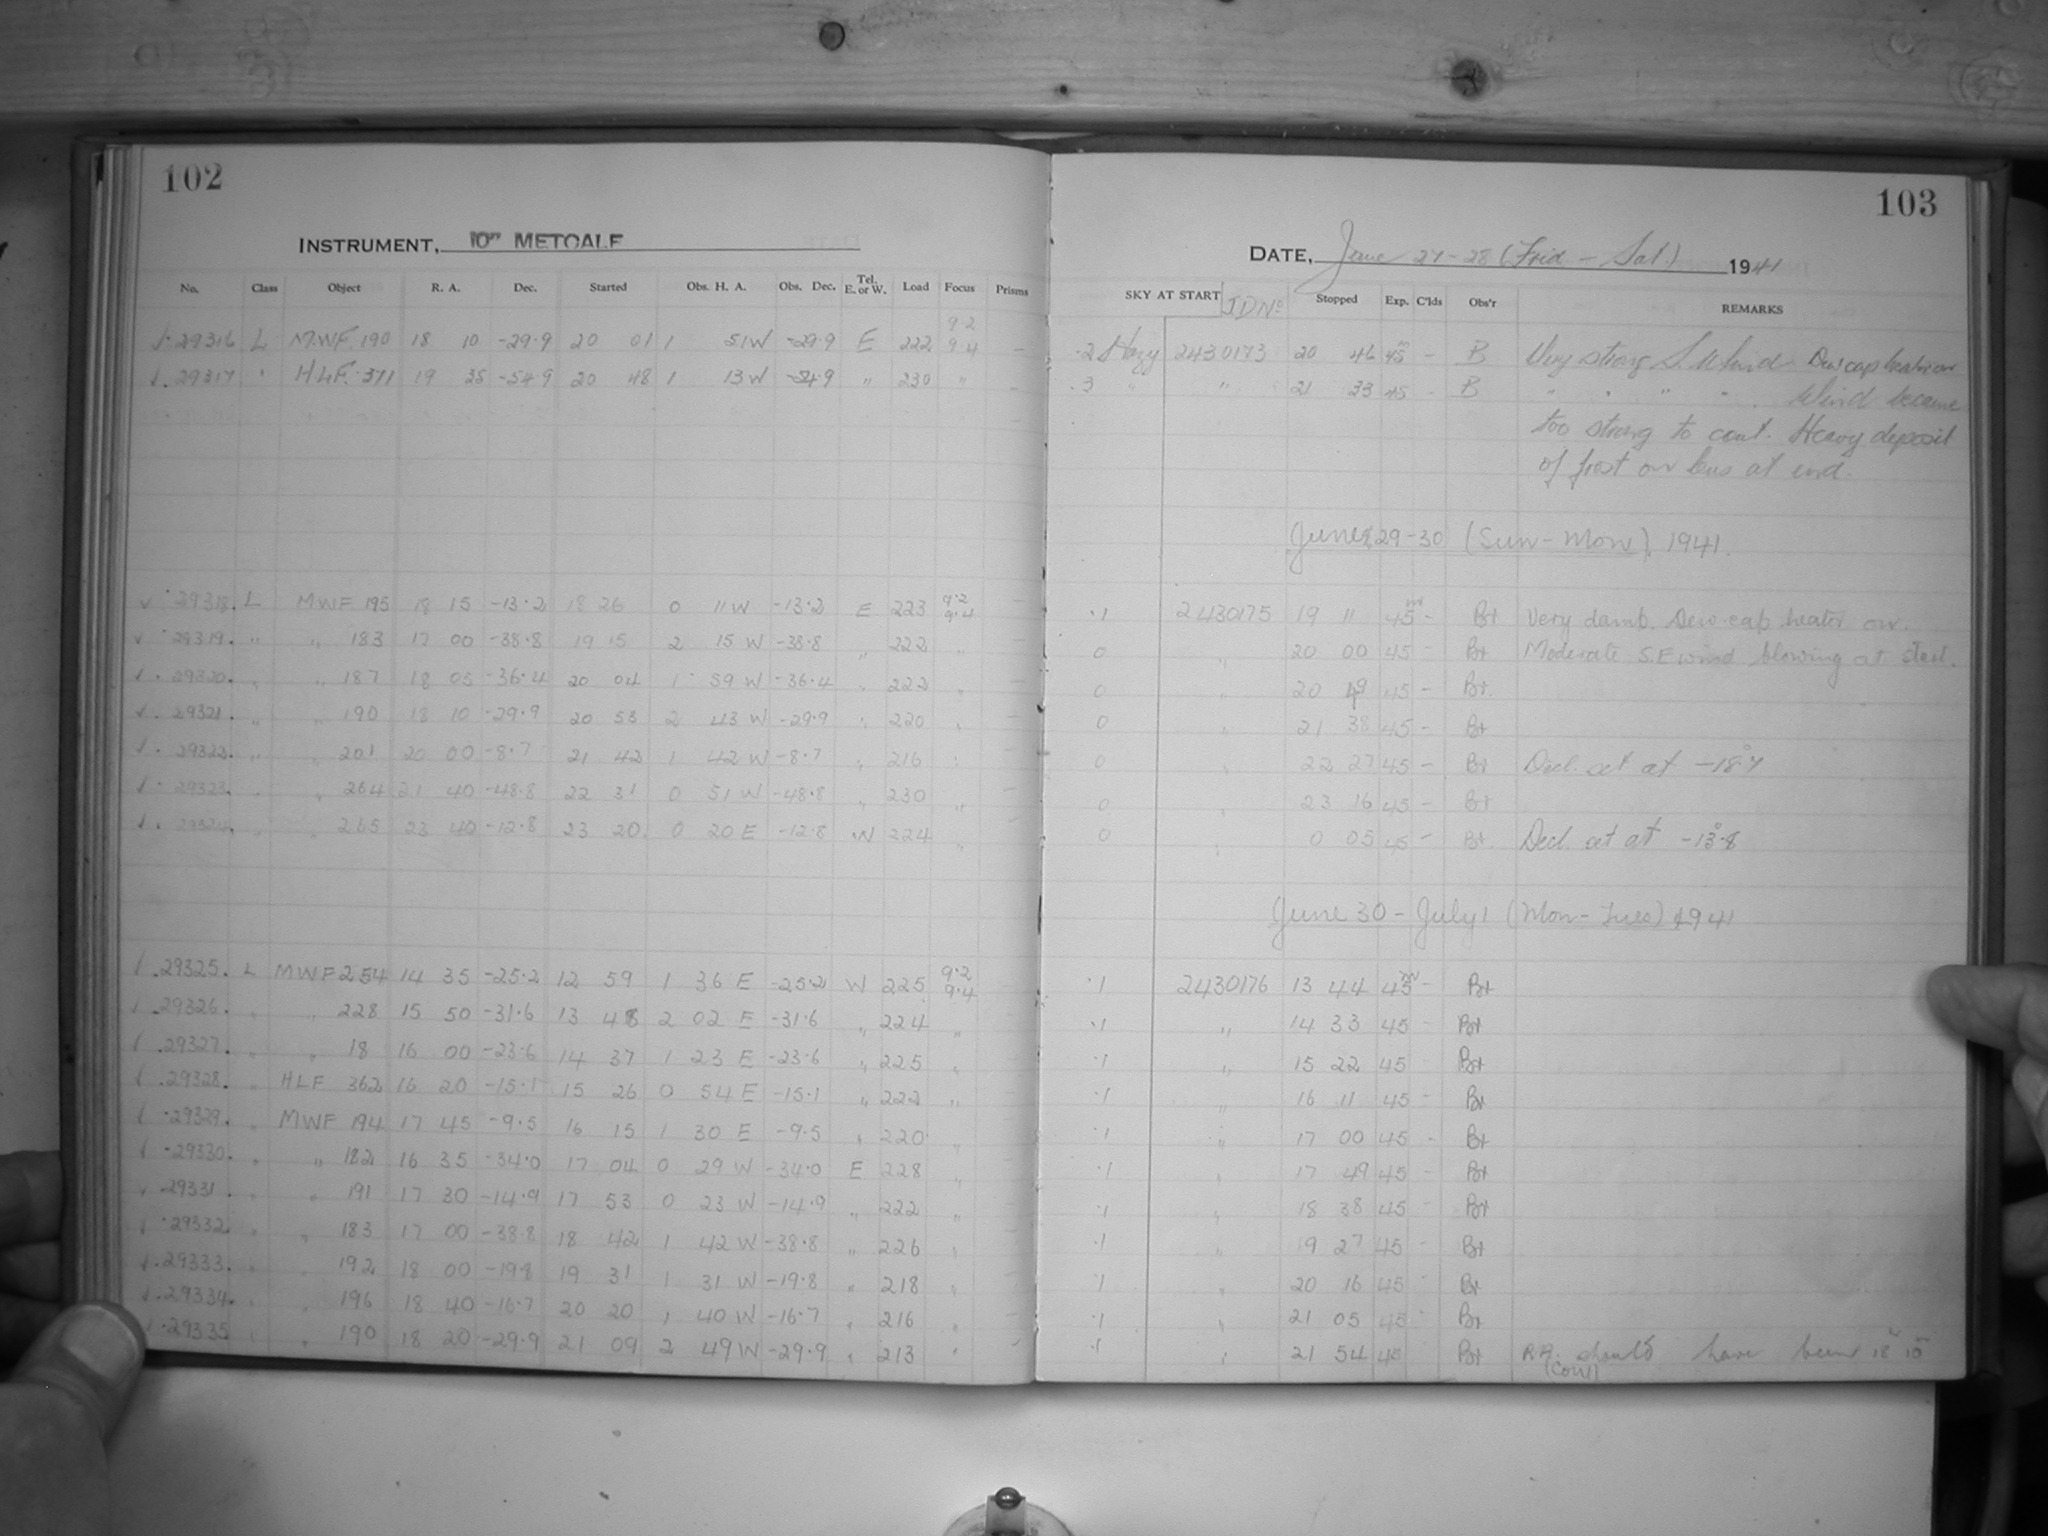 102
INSTRUMENT, 10" METCALF
No. Class Object R. A. Dec. Started Obs. H. A. Obs. Dec. Tel. E. or W. Load Focus Prisms
29316 L MWF 190 18 10 -29.9 20 01 1 51 W -29.9 E 222 9.2 9.4 –
29317 " HLF. 371 19 35 -54.9 20 48 1 13 W -54.9 " 230 " –
29318. L MWF 195 18 15 -13.2 18 26 0 11 W -13.2 E 223 9.2 9.4 –
29319. " " 183 17 00 -38.8 19 15 2 15 W -38.8 " 222 " –
29320. " " 187 18 05 -36.4 20 04 1 59 W -36.4 " 222 " –
29321. " " 190 18 10 -29.9 20 53 2 43 W -29.9 " 220 " –
29322. " " 201 20 00 -8.7 21 42 1 42 W -8.7 " 216 " –
29323. " " 264 21 40 -48.8 22 31 0 51 W -48.8 " 230 " –
29324. " " 265 23 40 -12.8 23 20. 0 20 E -12.8 W 224 " –
29325. L MWF 254 14 35 -25.2 12 59 1 36 E -25.2 W 225 9.2 9.4 –
29326. " " 228 15 50 -31.6 13 48 2 02 E -31.6 " 224 " –
29327. " " 18 16 00 -23.6 14 37 1 23 E -23.6 " 225 " –
29328. " HLF 362 16 20 -15.1 15 26 0 54 E -15.1 " 222 " –
29329. " MWF 194 17 45 -9.5 16 15 1 30 E -9.5 " 220 " –
29330. " " 182 16 35 -34.0 17 04 0 29 W -34.0 E 228 " –
29331. " " 191 17 30 -14.9 17 53 0 23 W -14.9 " 222 " –
29332. " " 183 17 00 -38.8 18 42 1 42 W -38.8 " 226 " –
29333. " " 192 18 00 -19.8 19 31 1 31 W -19.8 " 218 " –
29334. " " 196 18 40 -16.7 20 20 1 40 W -16.7 " 216 " –
29335 " " 190 18 20 -29.9 21 09 2 49 W -29.9 " 213 " –
103
DATE, June 27-28 (Frid - Sat.) 1941
SKY AT START JD No. Stopped Exp. C'lds Obs'r REMARKS
.2 Hazy 2430173 20 46 45m – B Very strong S. Wind Dew cap heater on
.3 " " 21 33 45 – B " " " " Wind became
too strong to cont. Heavy deposit
of frost on lens at end.
June 29-30 (Sun-Mon), 1941.
.1 2430175 19 11 45m – Bt Very damp. Dew-cap heater on.
0 " 20 00 45 – Bt Moderate S.E wind blowing at start.
0 " 20 49 45 – Bt.
0 " 21 38 45 – Bt
0 " 22 27 45 – Bt Decl. set at -18°.7
0 " 23 16 45 – Bt
0 " 0 05 45 – Bt. Decl. set at -13°.8
June 30 - July 1 (Mon-Tues) 1941
.1 2430176 13 44 45m – Bt
.1 " 14 33 45 – Bt
.1 " 15 22 45 – Bt
.1 " 16 11 45 – Bt
.1 " 17 00 45 – Bt
.1 " 17 49 45 – Bt
.1 " 18 38 45 – Bt
.1 " 19 27 45 – Bt
.1 " 20 16 45 – Bt
.1 " 21 05 45 – Bt
.1 " 21 54 45 Bt R.A. should have been 18h 10m
(cont)